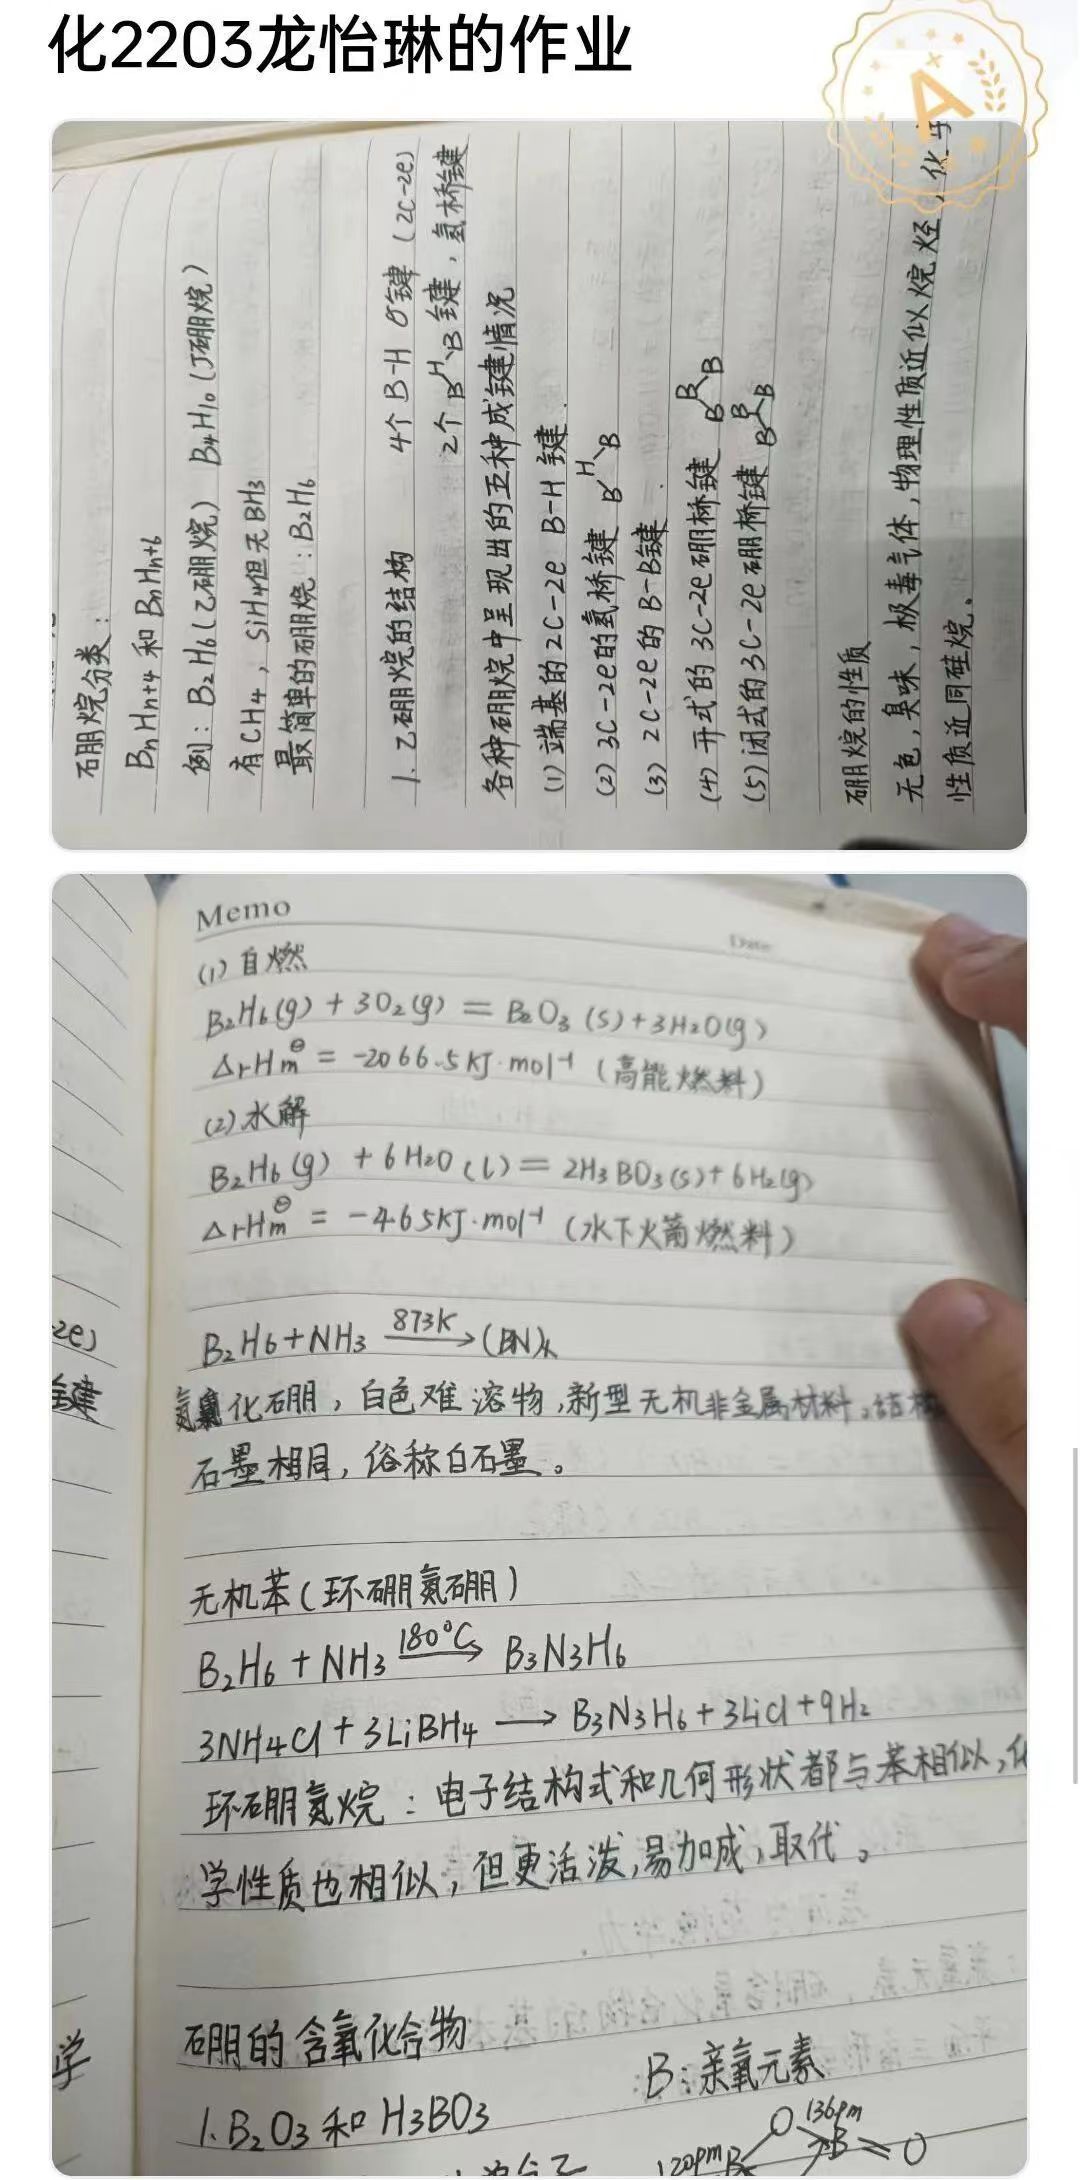 化2203龙怡琳的作业
A
硼烷分类：
BnHn+4 和 BnHn+6
例：B2H6(乙硼烷) B4H10(丁硼烷)
有CH4，SiH4但无BH3
最简单的硼烷：B2H6
1. 乙硼烷的结构 4个 B-H σ键 (2C-2e)
2个 B H B 键，氢桥键
各种硼烷中呈现出的五种成键情况
(1) 端基的 2C-2e B-H 键.
(2) 3C-2e的氢桥键 B H B
(3) 2C-2e的 B-B键.
(4) 开式的 3C-2e硼桥键 B B B
(5) 闭式的 3C-2e 硼桥键 B B B
硼烷的性质
无色，臭味，极毒气体，物理性质近似烷烃，化学
性质近同硅烷。
Memo
Date
(1) 自燃
B2H6(g) + 3O2(g) = B2O3 (s) + 3H2O(g)
ΔrHm⊖ = -2066.5 kJ·mol-1 (高能燃料)
(2) 水解
B2H6 (g) + 6H2O (l) = 2H3BO3(s) + 6H2(g)
ΔrHm⊖ = -465kJ·mol-1 (水下火箭燃料)
2e)
键
B2H6 + NH3 873K→ (BN)x
氮化硼，白色难溶物，新型无机非金属材料，结构
石墨相同，俗称白石墨。
无机苯(环硼氮硼)
B2H6 + NH3 180°C→ B3N3H6
3NH4Cl + 3LiBH4 → B3N3H6 + 3LiCl + 9H2
环硼氮烷：电子结构式和几何形状都与苯相似，化
学性质也相似，但更活泼，易加成，取代。
学
硼的含氧化合物
B：亲氧元素
1. B2O3 和 H3BO3
O 136pm
120pm B B=O